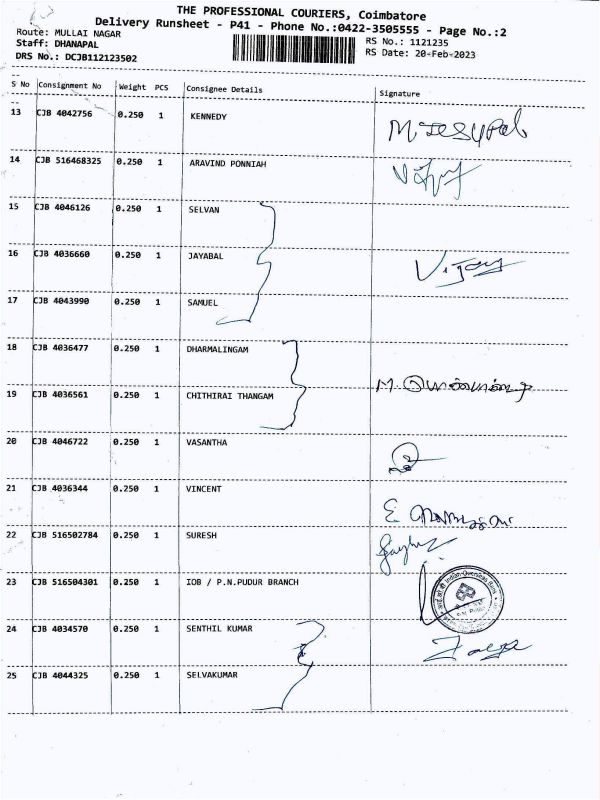 THE PROFESSIONAL COURIERS, Coimbatore
Delivery Runsheet - P41 - Phone No.:0422-3505555 - Page No.:2
Route: MULLAI NAGAR RS No.: 1121235
Staff: DHANAPAL RS Date: 20-Feb-2023
DRS No.: DCJB112123502
S No Consignment No Weight PCS Consignee Details Signature
13 CJB 4042756 0.250 1 KENNEDY
14 CJB 516468325 0.250 1 ARAVIND PONNIAH
15 CJB 4046126 0.250 1 SELVAN
16 CJB 4036660 0.250 1 JAYABAL Vijay
17 CJB 4043990 0.250 1 SAMUEL
18 CJB 4036477 0.250 1 DHARMALINGAM
19 CJB 4036561 0.250 1 CHITHIRAI THANGAM
20 CJB 4046722 0.250 1 VASANTHA
21 CJB 4036344 0.250 1 VINCENT
22 CJB 516502784 0.250 1 SURESH
23 CJB 516504301 0.250 1 IOB / P.N.PUDUR BRANCH
Indian Overseas Bank
24 CJB 4034570 0.250 1 SENTHIL KUMAR
25 CJB 4044325 0.250 1 SELVAKUMAR